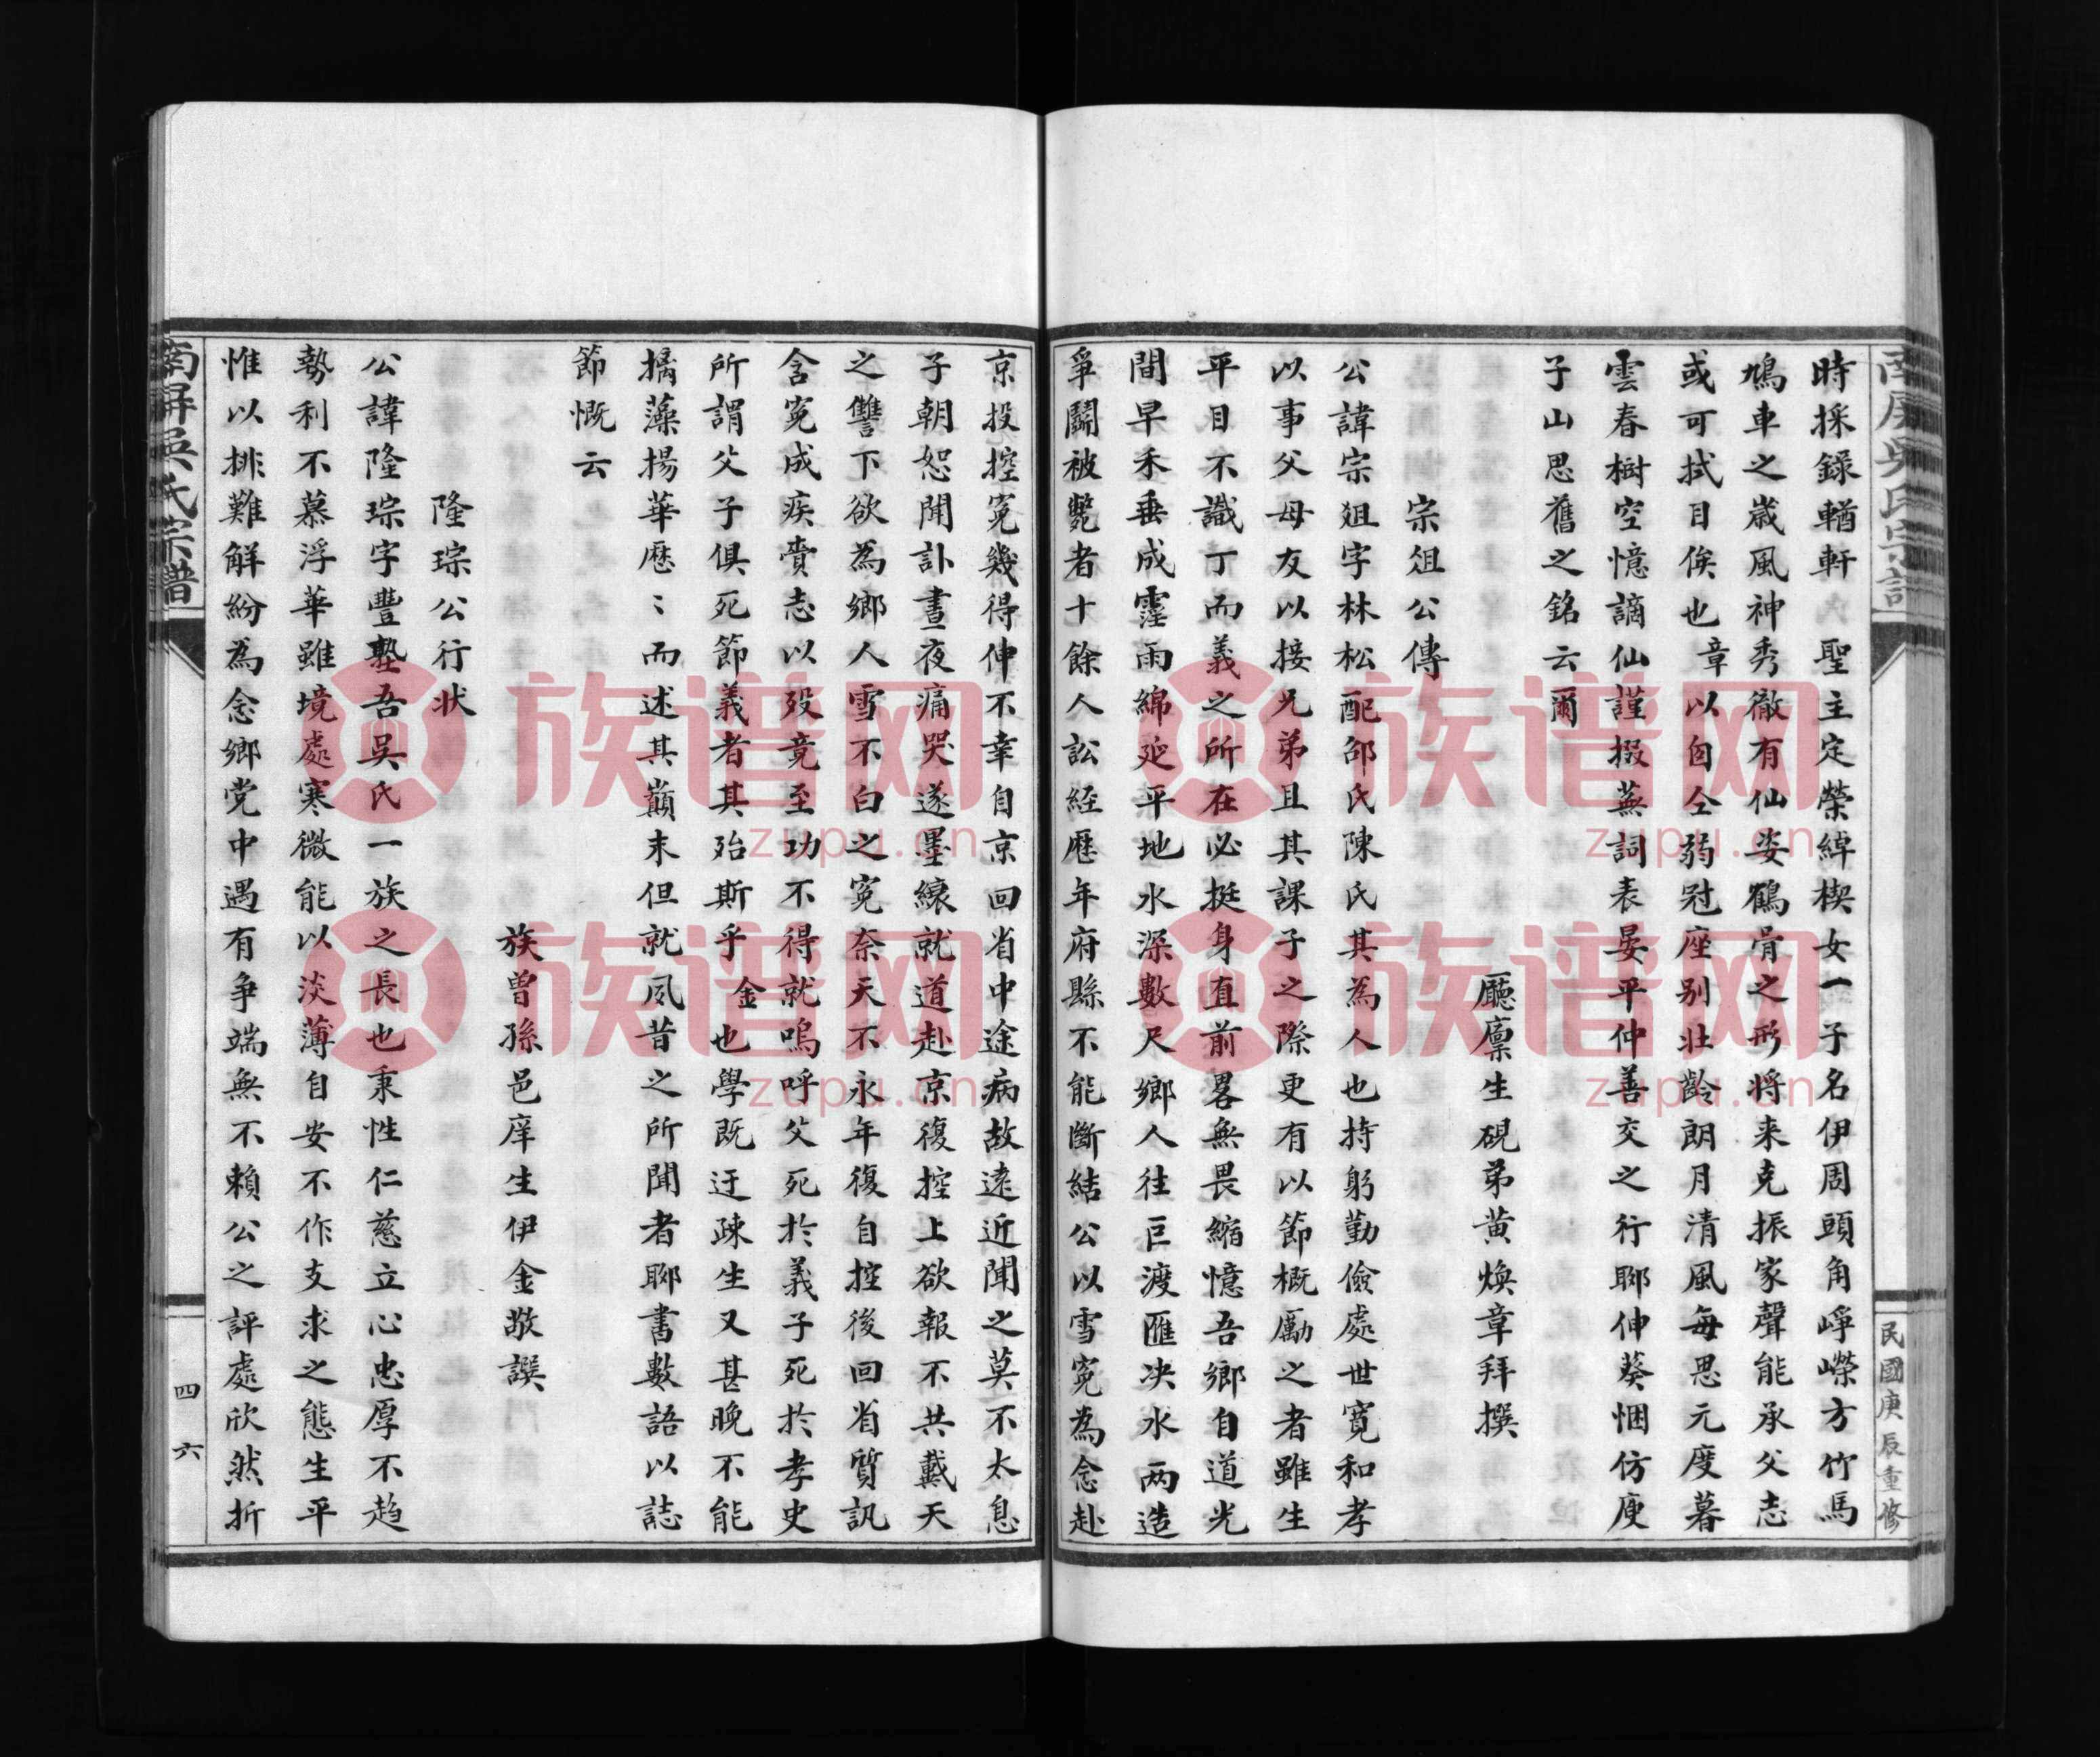 南屏吳氏宗譜
民國庚辰重修
時採錄輶軒　聖主定榮綽楔女一子名伊周頭角崢嶸方竹馬
鳩車之歲風神秀徹有仙姿鶴骨之形將来克振家聲能承父志
或可拭目俟也　章以自仝弱冠座別壯齡朗月清風每思元度暮
雲春樹空憶謫仙謹掇蕪詞表晏平仲善交之行聊伸葵悃仿庾
子山思舊之銘云爾
廳廩生硯弟黄煥章拜撰
宗俎公傳
公諱宗俎字林松配邵氏陳氏其為人也持躬勤儉處世寬和孝
以事父母友以接兄弟且其課子之際更有以節概勵之者雖生
平目不識丁而義之所在必挺身直前畧無畏縮憶吾鄉自道光
間早禾垂成霪雨綿延平地水深數尺鄉人往巨渡匯决水两造
爭鬭被斃者十餘人訟經歷年府縣不能斷結公以雪寃為念赴
京投控寃幾得伸不幸自京回省中途病故遠近聞之莫不太息
子朝恕聞訃晝夜痛哭遂墨縗就道赴京復控上欲報不共戴天
之讐下欲為鄉人雪不白之寃奈天不永年復自控後回省質訊
含寃成疾賫志以歿竟至功不得就嗚呼父死於義子死於孝史
所謂父子俱死節義者其殆斯乎　金也學既迂疎生又甚晚不能
摛藻揚華歷〻而述其巔末但就夙昔之所聞者聊書數語以誌
節慨云
族曾孫邑庠生伊金敬譔
隆琮公行状
公諱隆琮字豐塾吾吳氏一族之長也秉性仁慈立心忠厚不趋
勢利不慕浮華雖境處寒微能以淡薄自安不作支求之態生平
惟以排難解紛為念鄉党中遇有争端無不賴公之評處欣然折
南屏吳氏宗譜
四六
族谱网
zupu.cn
族谱网
zupu.cn
族谱网
zupu.cn
族谱网
zupu.cn